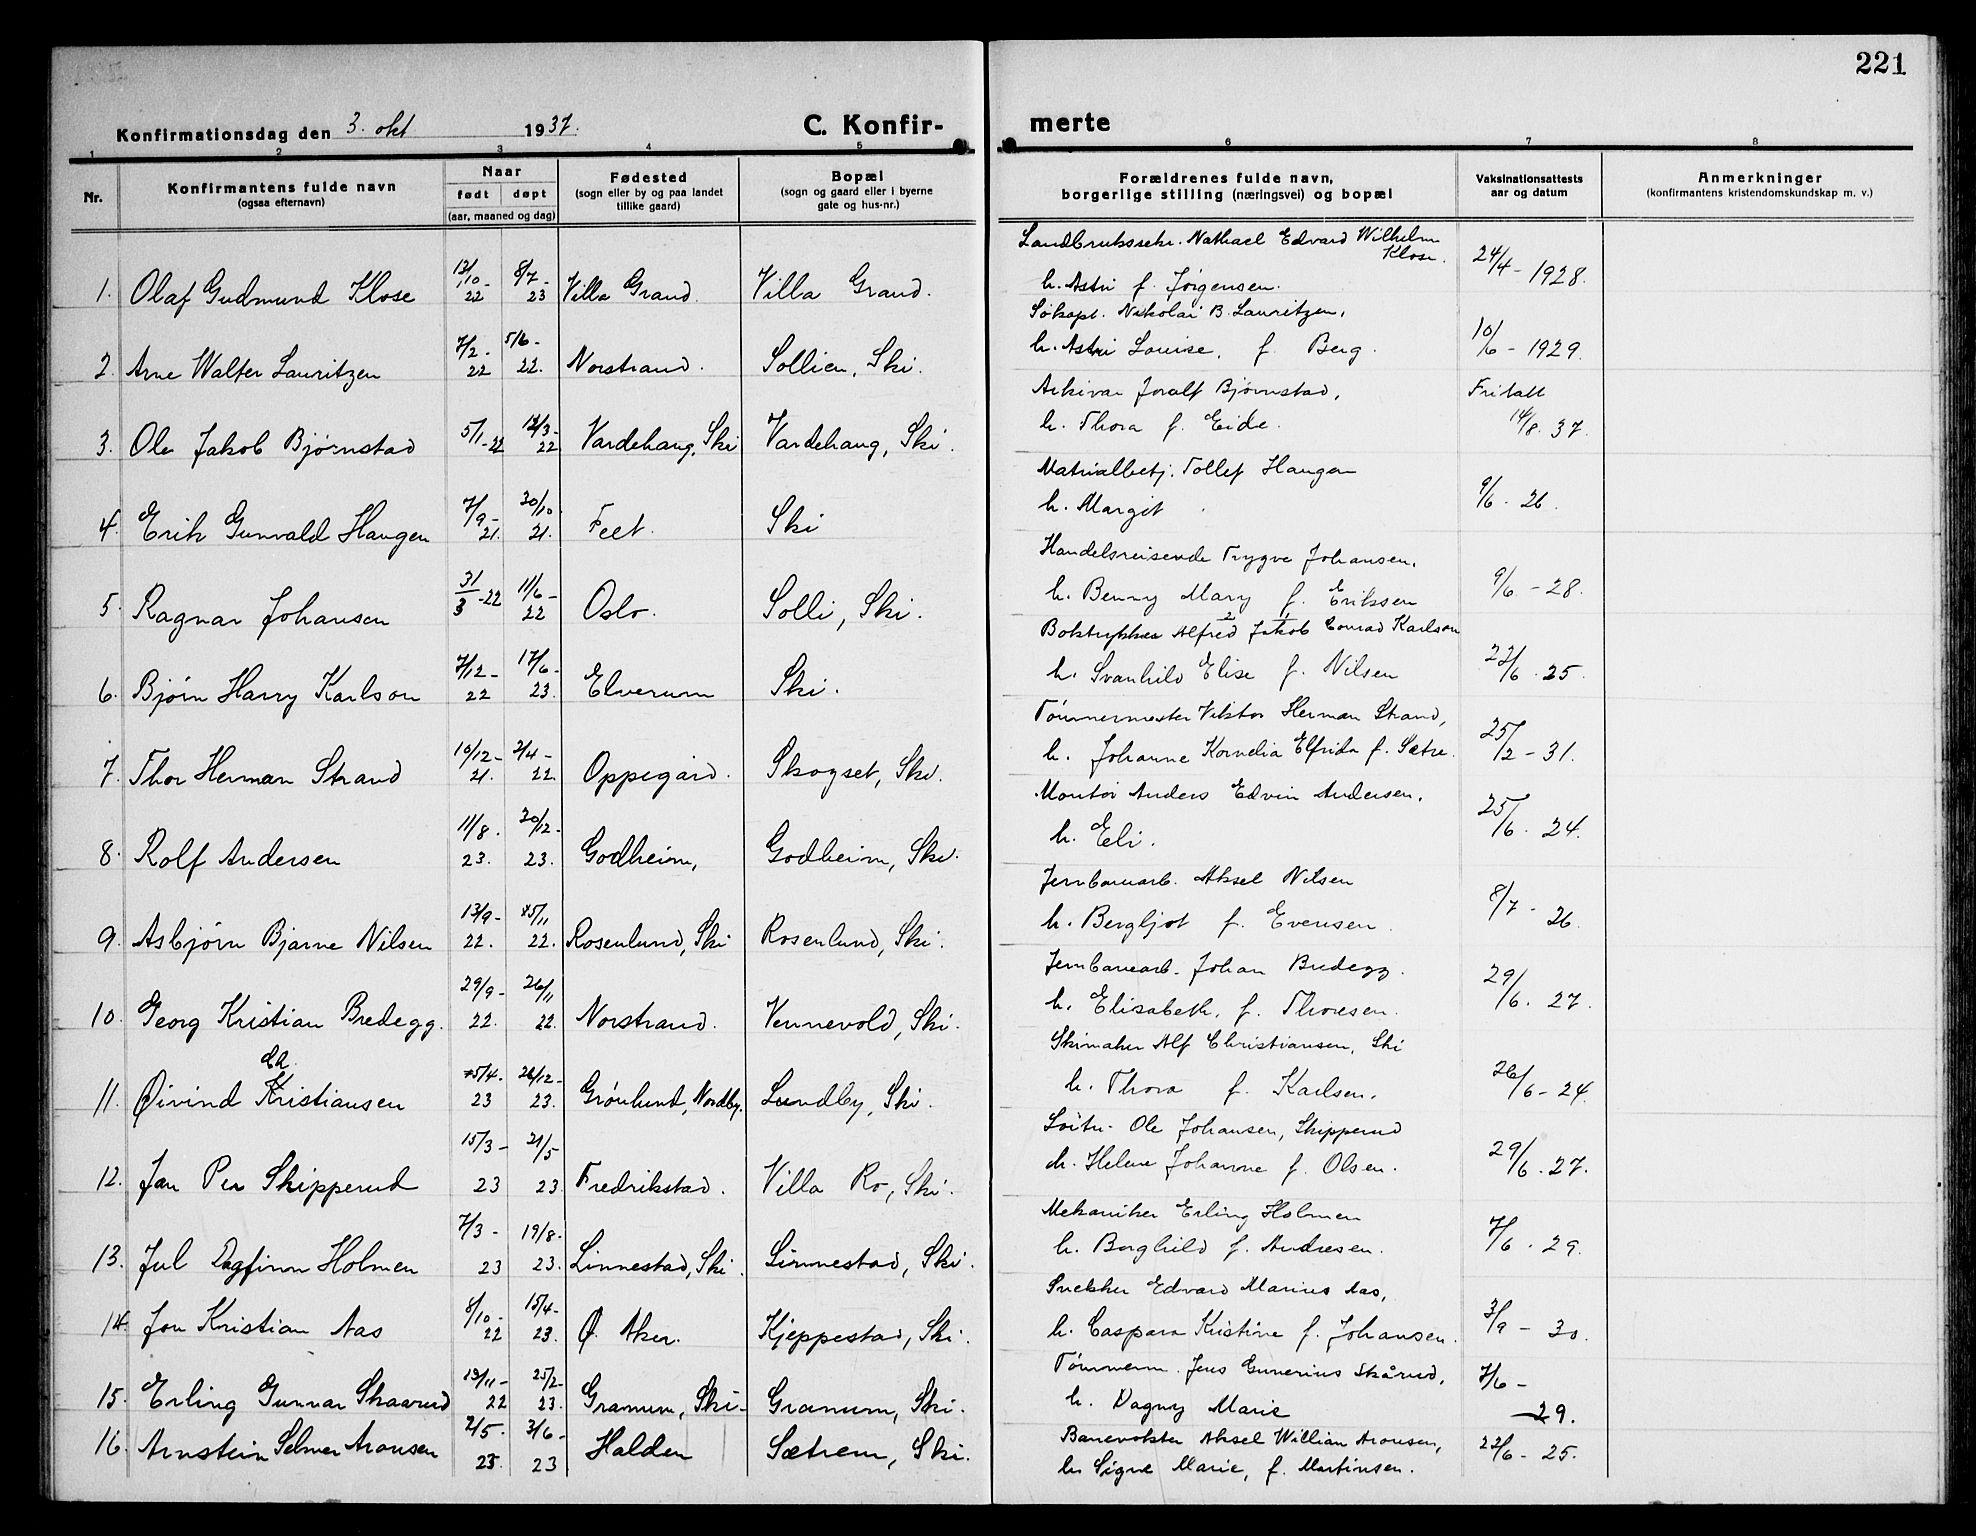 221
Konfirmationsdag den 3. okt 1937.
C. Konfir-
merte
1 2 3 4 5 6 7 8
Nr.
Konfirmantens fulde navn
(ogsaa efternavn)
Naar
født døpt
(aar, maaned og dag)
Fødested
(sogn eller by og paa landet
tillike gaard)
Bopæl
(sogn og gaard eller i byerne
gate og hus-nr.)
Forældrenes fulde navn,
borgerlige stilling (næringsvei) og bopæl
Vaksinationsattests
aar og datum
Anmerkninger
(konfirmantens kristendomskundskap m. v.)
Landbrukssekr. Nathael Edvard Wilhelm
Klose.
1. Olaf Gudmund Klose 13/10-22 8/7-23 Villa Grand. Villa Grand. h. Astri f. Jørgensen. 24/4-1928.
Søkapt. Nikolai B. Lauritzen,
2. Arne Walter Lauritzen 7/2-22 5/6-22. Norstrand. Sollien, Ski. h. Astri Louise, f. Berg. 10/6-1929.
Arkivar Joralf Bjørnstad, Fritatt
3. Ole Jakob Bjørnstad 5/1-22 12/3-22 Vardehaug, Ski Vardehaug, Ski. h. Thora f. Eide. 14/8. 37.
Matrialbetj. Tollef Haugen
4. Erik Gunvald Haugen 7/9-21. 30/10. 21. Feet. Ski h. Margit 9/6. 26.
Handelsreisende Trygve Johansen,
5. Ragnar Johansen 31/3-22 11/6-22 Oslo. Solli, Ski. h. Benny Mary f. Eriksen 9/6-28.
Boktrykker Alfred Jakob Conrad Karlson
6. Bjørn Harry Karlson 7/12-22 17/6-23. Elverum Ski. h. Svanhild Elise f. Nilsen 22/6. 25.
Tømmermester Viktor Herman Strand,
7. Thor Herman Strand 10/12-21. 2/4-22. Oppegård. Skogset, Ski. h. Johanne Kornelia Elfrida f. Sætre. 25/2-31.
Montør Anders Edvin Andersen,
8. Rolf Andersen 11/8. 23. 20/12-23. Godheim, Godheim, Ski. h. Eli. 25/6. 24.
Jernbanearb. Aksel Nilsen
9. Asbjørn Bjarne Nilsen 13/9-22. 5/11 22. Rosenlund, Ski Rosenlund, Ski. h. Bergljot f. Evensen. 8/7-26.
Jernbanearb. Johan Bredegg.
10. Georg Kristian Bredegg. 29/9-22. 26/11 22. Norstrand. Vennevold, Ski. h. Elisabeth, f. Thoresen. 29/6. 27.
Ch
Skimaker Alf Christiansen, Ski
11. Øivind Kristiansen 5/4. 23 26/12-23. Grønlund, Nordby. Lundby, Ski. h. Thora f. Karlsen. 26/6-24.
Ole Johansen, Skipperud
12. Jan Per Skipperud 15/3-23 21/5 23. Fredrikstad. Villa Ro, Ski. h. Helene Johanne f. Olsen. 29/6. 27.
Mekaniker Erling Holmen
13. Jul Dagfinn Holmen 7/3-23 19/8-23. Linnestad, Ski. Linnestad, Ski. h. Borghild f. Andresen. 7/6. 29.
Snekker Edvard Marius Aas,
14. Jon Kristian Aas 8/10-22 15/4-23. Ø. Aker. Kjeppestad, Ski. h. Caspara Kristine f. Johansen. 3/9-30.
Tømmerm. Jens Gunerius Skårud,
15. Erling Gunnar Skaarud 19/11-22 25/2-23. Granum, Ski- Granum, Ski. h. Dagny Marie 7/6-29.
Banevokter Aksel William Aronsen,
16. Arnstein Selmer Aronsen 2/5. 23. 3/6-23 Halden Sætrem, Ski. h. Signe Marie, f. Martinsen. 22/6-25.